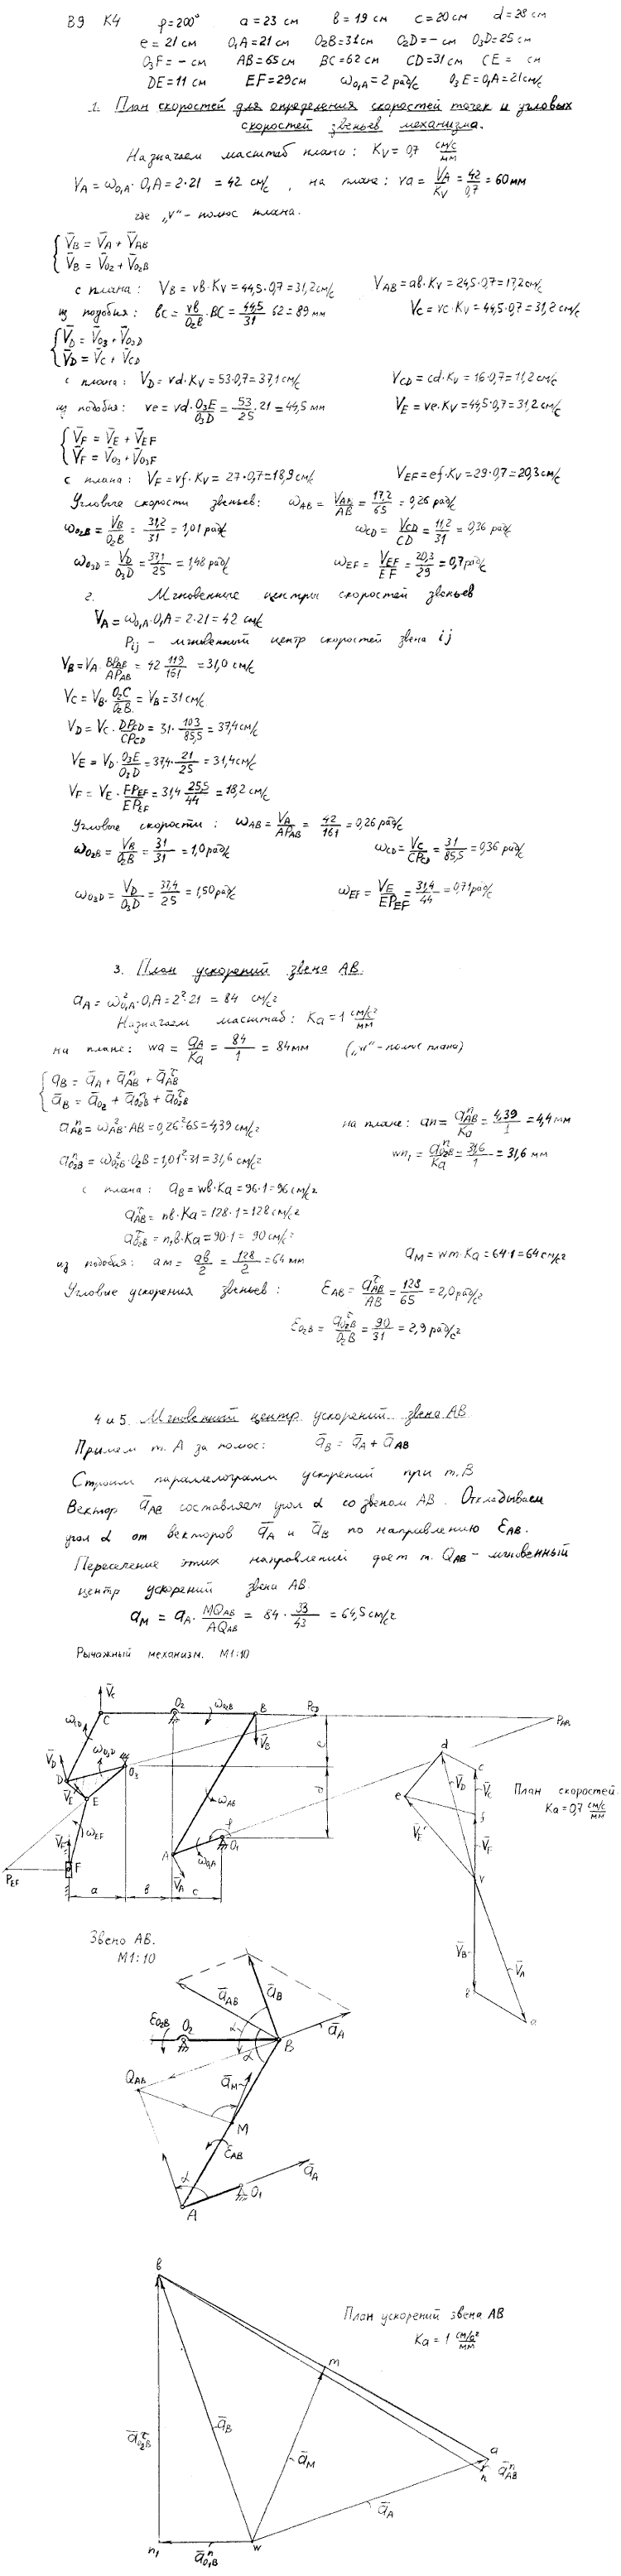 В9 К4 φ=200° a=23 см b=19 см c=20 см d=28 см
e=21 см O₁A=21 см O₂B=31 см O₂D=− см O₃D=25 см
O₃F=− см AB=65 см BC=62 см CD=31 см CE= см
DE=11 см EF=29 см ω_O₁A=2 рад/с O₃E=O₁A=21 см/с
1. План скоростей для определения скоростей точек и угловых
скоростей звеньев механизма.
Назначаем масштаб плана: K_V=0,7 см/с/мм
V_A=ω_O₁A·O₁A=2·21=42 см/с, на плане: va=V_A/K_V=42/0,7=60 мм
где „v"-полюс плана.
V̄_B=V̄_A+V̄_AB
V̄_B=V̄_O2+V̄_O2B
с плана: V_B=vb·K_V=44,5·0,7=31,2 см/с V_AB=ab·K_V=24,5·0,7=17,2 см/с
из подобия: bc=vb/O₂B·BC=44,5/31 62=89 мм V_C=vc·K_V=44,5·0,7=31,2 см/с
V̄_D=V̄_O3+V̄_O3D
V̄_D=V̄_C+V̄_CD
с плана: V_D=vd·K_V=53·0,7=37,1 см/с V_CD=cd·K_V=16·0,7=11,2 см/с
из подобия: ve=vd·O₃E/O₃D=53/25·21=44,5 мм V_E=ve·K_V=44,5·0,7=31,2 см/с
V̄_F=V̄_E+V̄_EF
V̄_F=V̄_O3+V̄_O3F
с плана: V_F=vf·K_V=27·0,7=18,9 см/с V_EF=ef·K_V=29·0,7=20,3 см/с
Угловые скорости звеньев: ω_AB=V_AB/AB=17,2/65=0,26 рад/с
ω_O2B=V_B/O₂B=31,2/31=1,01 рад/с ω_CD=V_CD/CD=11,2/31=0,36 рад/с
ω_O3D=V_D/O₃D=37,1/25=1,48 рад/с ω_EF=V_EF/EF=20,3/29=0,7 рад/с
2. Мгновенные центры скоростей звеньев
V_A=ω_O₁A·O₁A=2·21=42 см/с
P_ij - мгновенный центр скоростей звена ij
V_B=V_A·BP_AB/AP_AB=42 119/161=31,0 см/с
V_C=V_B·O₂C/O₂B=V_B=31 см/с
V_D=V_C·DP_CD/CP_CD=31·103/85,5=37,4 см/с
V_E=V_D·O₃E/O₃D=37,4·21/25=31,4 см/с
V_F=V_E·FP_EF/EP_EF=31,4 25,5/44=18,2 см/с
Угловые скорости: ω_AB=V_A/AP_AB=42/161=0,26 рад/с
ω_O2B=V_B/O₂B=31/31=1,0 рад/с ω_CD=V_C/CP_CD=31/85,5=0,36 рад/с
ω_O3D=V_D/O₃D=37,4/25=1,50 рад/с ω_EF=V_E/EP_EF=31,4/44=0,71 рад/с
3. План ускорений звена AB.
a_A=ω²_O₁A·O₁A=2²·21=84 см/с²
Назначаем масштаб: Ka=1 см/с²/мм
на плане: wa=a_A/Ka=84/1=84 мм („w"-полюс плана)
a̅_B=a̅_A+a̅ⁿ_AB+a̅^τ_AB
a̅_B=a̅_O2+a̅ⁿ_O2B+a̅^τ_O2B
aⁿ_AB=ω²_AB·AB=0,26²65=4,39 см/с² на плане: an=aⁿ_AB/Ka=4,39/1=4,4 мм
aⁿ_O2B=ω²_O2B·O₂B=1,01²·31=31,6 см/с² wn₁=aⁿ_O2B/Ka=31,6/1=31,6 мм
с плана: a_B=wb·Ka=96·1=96 см/с²
a^τ_AB=nb·Ka=128·1=128 см/с²
a^τ_O2B=n₁b·Ka=90·1=90 см/с²
из подобия: am=ab/2=128/2=64 мм a_M=wm·Ka=64·1=64 см/с²
Угловые ускорения звеньев: ε_AB=a^τ_AB/AB=128/65=2,0 рад/с²
ε_O2B=a^τ_O2B/O₂B=90/31=2,9 рад/с²
4 и 5. Мгновенный центр ускорений звена AB
Примем т. A за полюс: a̅_B=a̅_A+a̅_AB
Строим параллелограмм ускорений при т. B
Вектор a̅_AB составляем угол α со звеном AB. Откладываем
угол α от векторов a̅_A и a̅_B по направлению ε_AB.
Пересечение этих направлений дает т. Q_AB - мгновенный
центр ускорений звена AB.
a_M=a_A·MQ_AB/AQ_AB=84·33/43=64,5 см/с²
Рычажный механизм. М1:10
V̄_C
C O₂ ω_O2B B P_CD P_AB
ω_CD V̄_B
V̄_D ω_O3D O₃
D V̄_E E ω_AB
ω_EF φ O₁
V̄_F F A ω_O₁A
P_EF V̄_A
a b c d e
d c
V̄_D V̄_C
e f
V̄_E V̄_F
v
V̄_B V̄_A
b a
План скоростей.
Ka=0,7 см/с/мм
Звено AB.
М1:10
a̅_AB a̅_B
ε_O2B O₂ α a̅_A
B
α
Q_AB a̅_M
M
ε_AB
α a̅_A
O₁
A
b
План ускорений звена AB
Ka=1 см/с²/мм
m
a̅^τ_O2B a̅_B a̅_M
a
n a̅ⁿ_AB
a̅_A
n₁ w
a̅ⁿ_O₁B